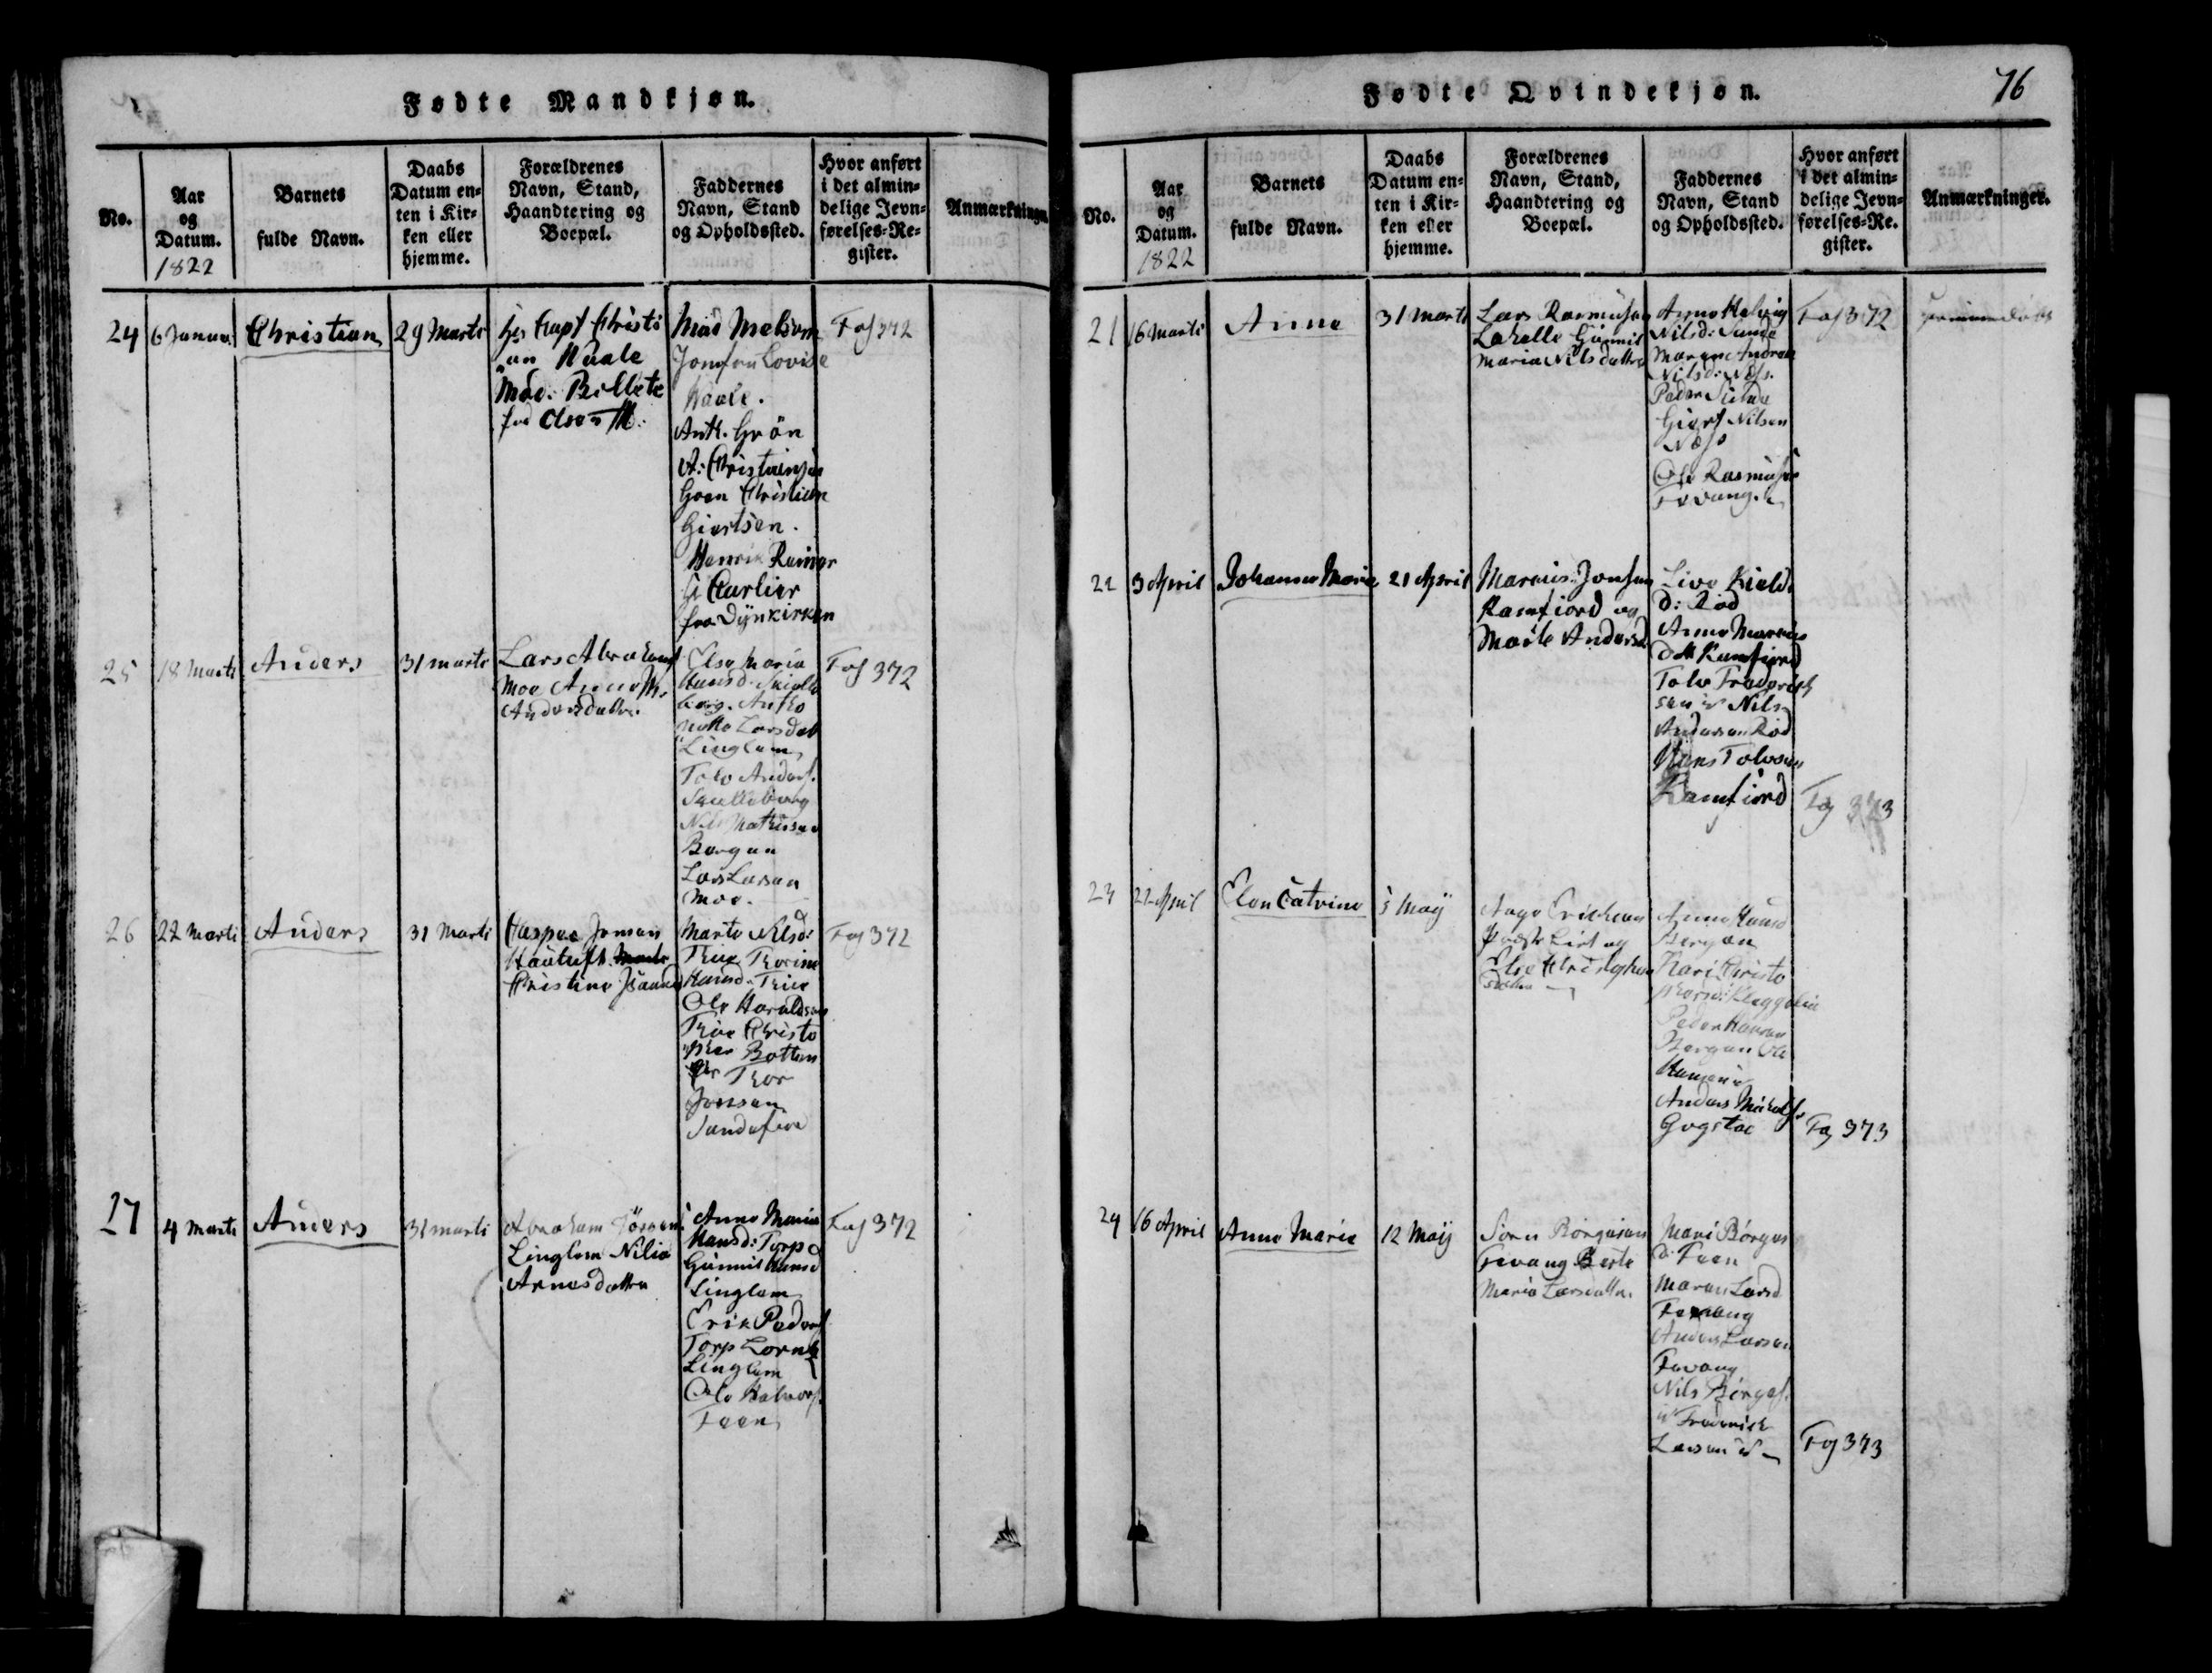 Fødte Mandkjøn.
No.
Aar
og
Datum.
1822
Barnets
fulde Navn.
Daabs
Datum en-
ten i Kir-
ken eller
hjemme.
Forældrenes
Navn, Stand,
Haandtering og
Boepæl.
Faddernes
Navn, Stand
og Opholdssted.
Hvor anført
i det almin-
delige Jevn-
førelses-Re-
gister.
Anmærkninge
24
6 Januar
Christian
29 Marts
Hr Capt Christi
an Waale
Mad: Billete
fød Olsen
Mad Melsom
Jomfru Lovise
Waale.
Anth. Grön
A: Christensen
Christian
Giertsen.
Henrik Reimer
Carlier
fra Dynkirken
Fol 372
25
18 Marts
Anders
31 marts
Lars Abrahams
Moe Anne M:
Andersdatter.
Else Maria
Hansd:
berg.
Larsdat
Linglem
Tolv Anders.
Skielleberg
Nils Mathissen
Bergan
Lars Larsen
Moe.
Fol 372
26
22 Marts
Anders
31 Marts
Casper Jonsen
Hauluft
Christine
Marte Nilsd:
Trine Thorine
Hansd:
Ole Haraldsen
Christo
pher Botten
Thor
Jonsen
Sandefior
Fol 372
27
4 Marts
Anders
31 marts
Abraham
Linglem Nilia
Arnesdatter
Anne Maria
Hansd: Torp
Gunnil Hansd
Linglem
Erik Peders
Torp
Linglem
Ole Halvors.
Feen
Fol 372
Fødte Qvindekjøn.
76
No.
Aar
og
Datum.
1822
Barnets
fulde Navn.
Daabs
Datum en-
ten i Kir-
ken eller
hjemme.
Forældrenes
Navn, Stand,
Haandtering og
Boepæl.
Faddernes
Navn, Stand
og Opholdssted.
Hvor anført
i det almin-
delige Jevn-
førelses-Re-
gister.
Anmærkninger.
21
16 Marts
Anne
31 Marts
Lars Rasmussen
Lahelle Gunnil
Maria Nilsdatter
Anne Helvig
Nilsd: Sunde
Maren Andrea
Nilsd: Næss.
Peder Sunde
Giert Nilsen
Næss
Ole Rasmussen
Fevang.
Fol 372
22
3 April
Johanne Marie
21 April
Marcus Jonsen
Ramfiord og
Marte Andersd
Live Kield
d: Rød
Anne Marcus
datt Ramfiord
Tolv Frederich
sen Nils
Andersen Rød
Hans Tolvsen
Ramfiord
Fol 373
23
22 April
Elen Catrine
5 Maij
Aage Erichsen
og
Else Christophers
datter
Anne Hansd
Bergan
Kari Christo
phersd:
Peder Hansen
Bergan Ole
Hansen
Anders Michels.
Gogstad
Fol 373
24
16 April
Anne Marie
12 Maij
Sørn Børgesen
Fevang Berte
Maria Larsdatter.
Mari Børges
d: Feen
Maren Larsd
Fevang
Anders Larsen
Fevang
Nils Børges.
Frederich
Larsen
Fol 373